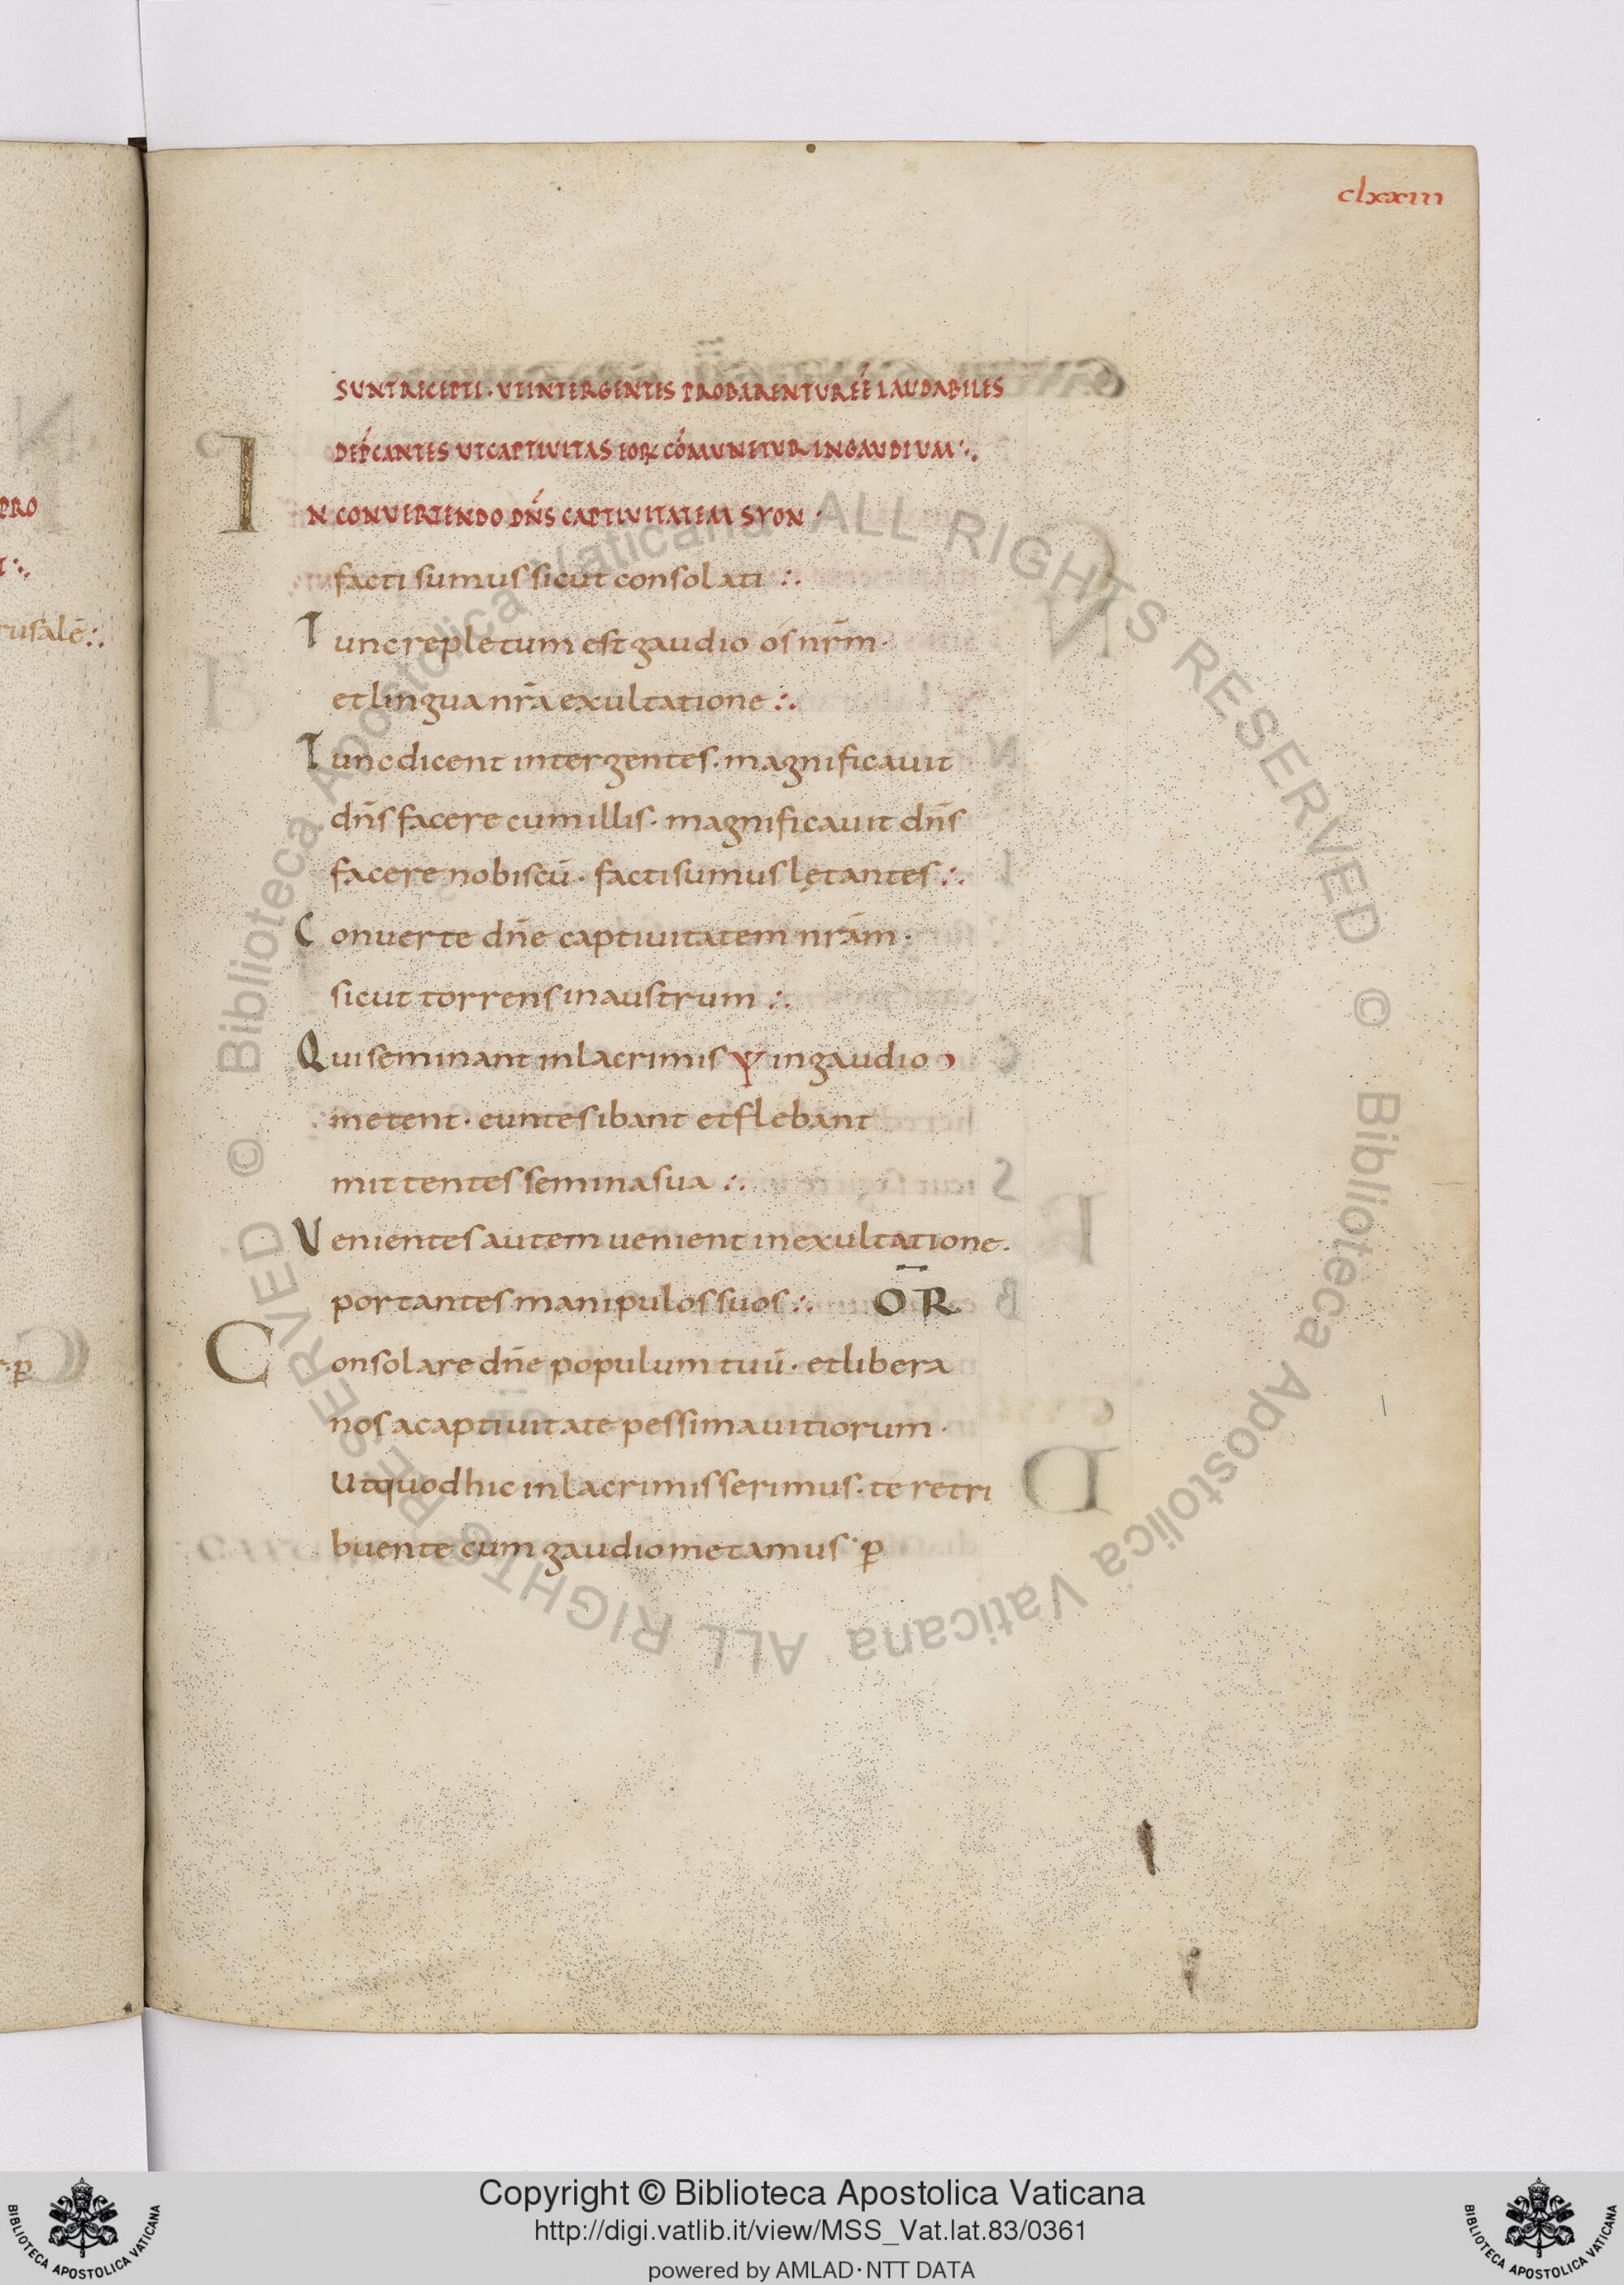 clxxiii
SUNT RECEPTI · UT INTER GENTES PROBARENTUR EĒ LAUDABILES
DEP̄CANTES UT CAPTIVITAS EOꝜ CŌMUNETUR IN GAUDIUM ∴
IN CONVERTENDO DN̄S CAPTIVITATEM SYON ·
facti sumus sicut consolati ∴
Tunc repletum est gaudio os nr̄m ·
et lingua nr̄a exultatione ∴
Tunc dicent inter gentes · magnificavit
dn̄s facere cum illis · magnificavit dn̄s
facere nobiscū · facti sumus lętantes ∴
Converte dn̄e captivitatem nr̄am ·
sicut torrens in austrum ∴
Qui seminant in lacrimis in gaudio
metent · euntes ibant et flebant
mittentes semina sua ∴
Venientes autem venient in exultatione ·
portantes manipulos suos ∴ ŌR
Consolare dn̄e populum tuū · et libera
nos a captivitate pessima vitiorum ·
Ut quod hic in lacrimis serimus · te retri
buente cum gaudio metamus · ꝑ
PRO
rusalē ∴
ꝑ
© Biblioteca Apostolica Vaticana ALL RIGHTS RESERVED © Biblioteca Apostolica Vaticana ALL RIGHTS RESERVED
Copyright © Biblioteca Apostolica Vaticana
http://digi.vatlib.it/view/MSS_Vat.lat.83/0361
powered by AMLAD · NTT DATA
BIBLIOTECA APOSTOLICA VATICANA
BIBLIOTECA APOSTOLICA VATICANA